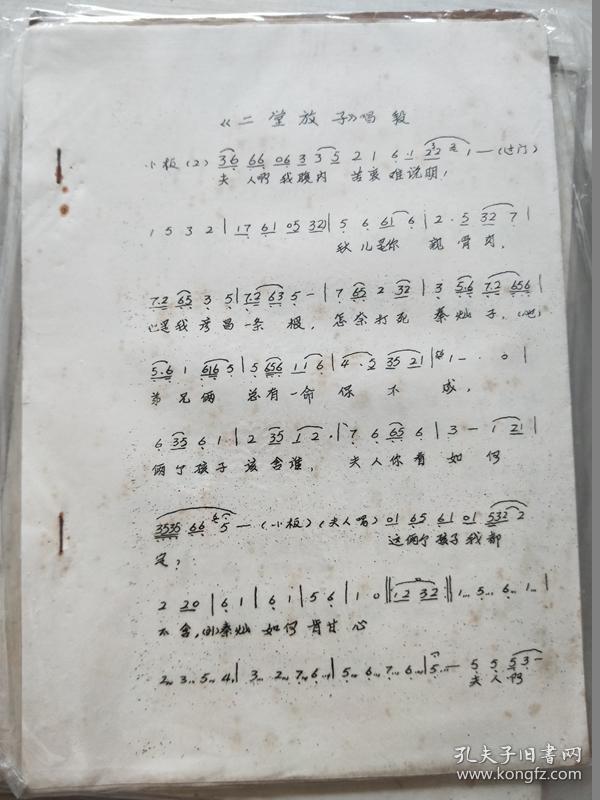 《二堂放子》唱段
小板(2) 36 66 06 3 3 5 2 1 6 1 22 1 — (过门)
夫人啊我腹内 苦衷难说明!
1 5 3 2 | 17 61 05 32 | 5 6 61 6 | 2 · 5 32 7 |
秋儿是你 亲骨肉,
7.2 65 3 5 | 7.2 63 5 — | 7 65 2 32 | 3 5.6 7.2 656 |
也是我彦昌一条根, 怎奈打死 秦灿子,(他)
5.6 1 616 5 | 5 656 11 6 | 4 · 5 35 21 | 1 — · 0 |
弟兄俩 总有一命 保 不 成,
6 35 6 1 | 2 35 1 2 · | 7 6 65 6 | 3 — 1 21 |
俩个孩子 该舍谁, 夫人你看 如 何
3535 66 5 — (小板)(夫人唱) 01 65 61 01 532 2
定? 这俩个孩子我都
2 20 | 6 1 | 6 1 | 5 6 | 1 0 | 12 32 | 1... 5... 6... 1... |
不舍, 秦灿 如何肯甘心
2... 3... 5... 4... | 3... 2... 7... 6... | 5... 6... 7... 6... | 5... — 5 5 53 —
夫人啊
孔夫子旧书网
www.kongfz.com